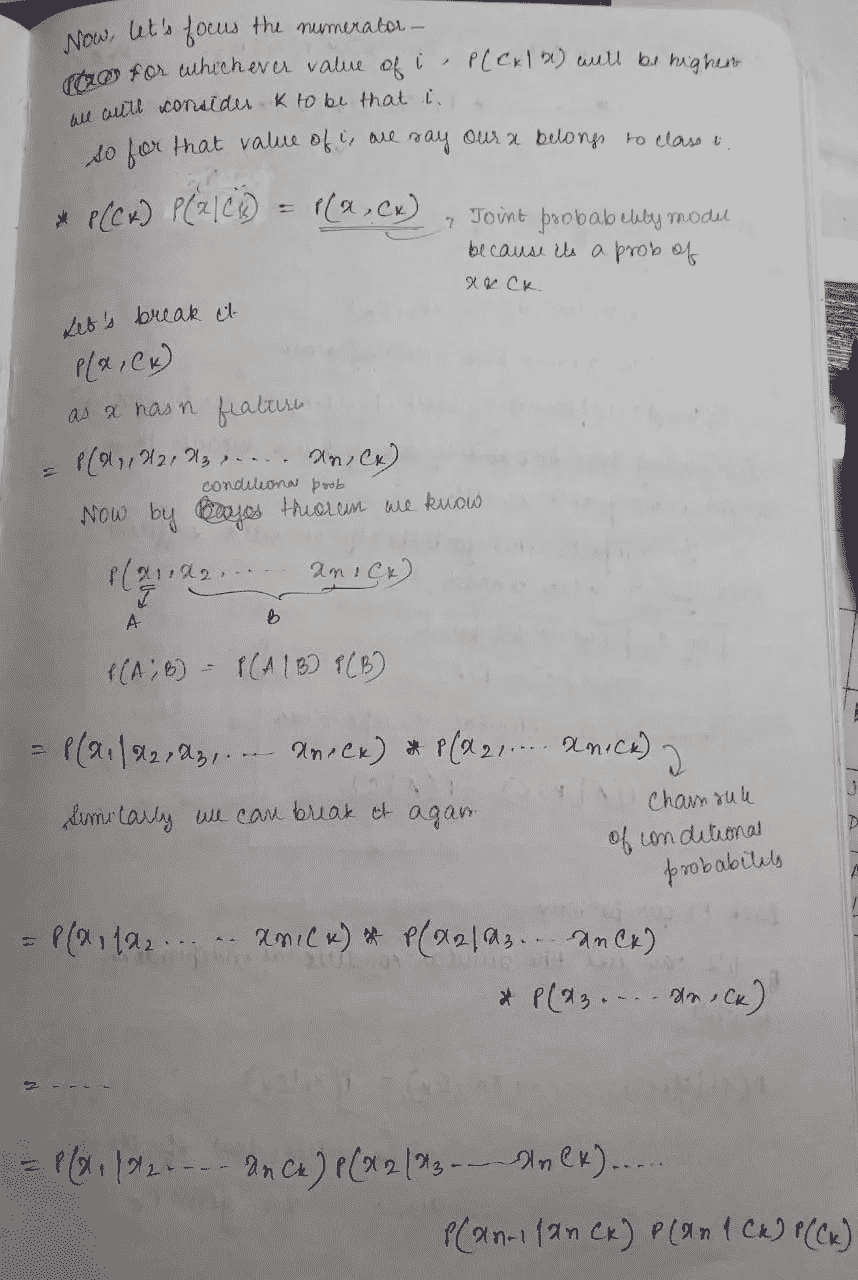 Now, let's focus the numerator -
for whichever value of i, P(Ck|x) will be highest
we will consider K to be that i.
so for that value of i, we say our x belongs to class i.
* P(Ck) P(x|Ck) = P(x, Ck) → Joint probability model
because its a prob of
x & Ck.
Let's break it
P(x, Ck)
as x has n feature
= P(x1, x2, x3, .... xn, Ck)
conditional prob
Now by theorem we know
P(x1, x2, .... xn, Ck)
A B
P(A, B) = P(A|B) P(B)
= P(x1|x2, x3, .... xn, Ck) * P(x2, .... xn, Ck)
Chain rule
Similarly we can break it again
of conditional
probabilits
= P(x1|x2 ..... xn, Ck) * P(x2|x3 ... xn Ck)
* P(x3 .... xn, Ck)
= ....
= P(x1|x2 .... xn Ck) P(x2|x3 ---- xn Ck) .....
P(xn-1|xn Ck) P(xn|Ck) P(Ck)